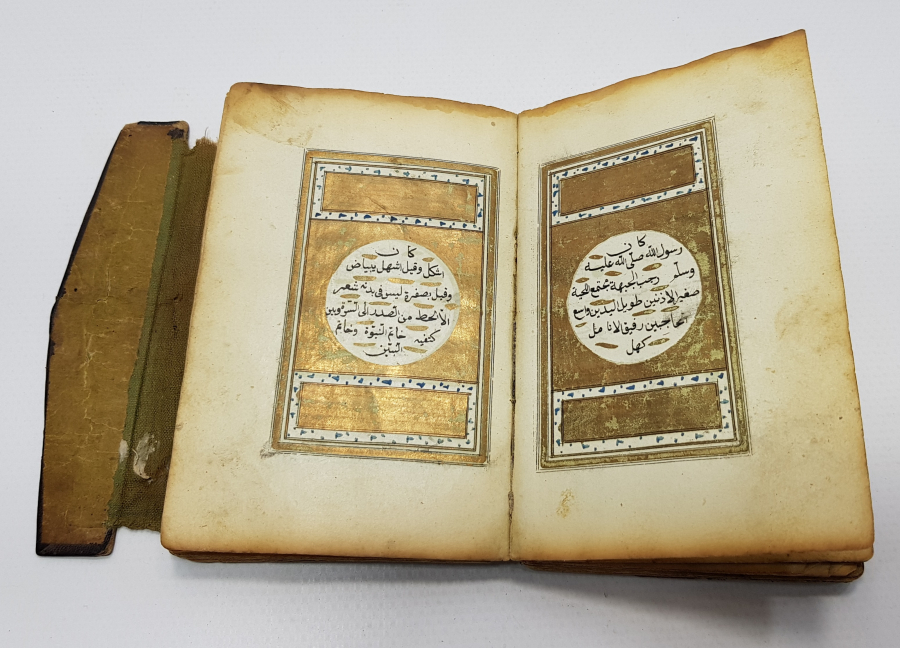 كان
رسول الله صلى الله عليه
وسلم رحب الجبهة مجتمع اللحية
صغير الاذنين طويل اليدين واسع
الحاجبين رقيق الانامل
كهل
كان
اشكل وقيل اشهل ببياض
وقيل بصفرة ليس فى بدنه شعر
الا لخط من الصدر الى السرة وبين
كتفيه خاتم النبوة وخاتم
النبيين